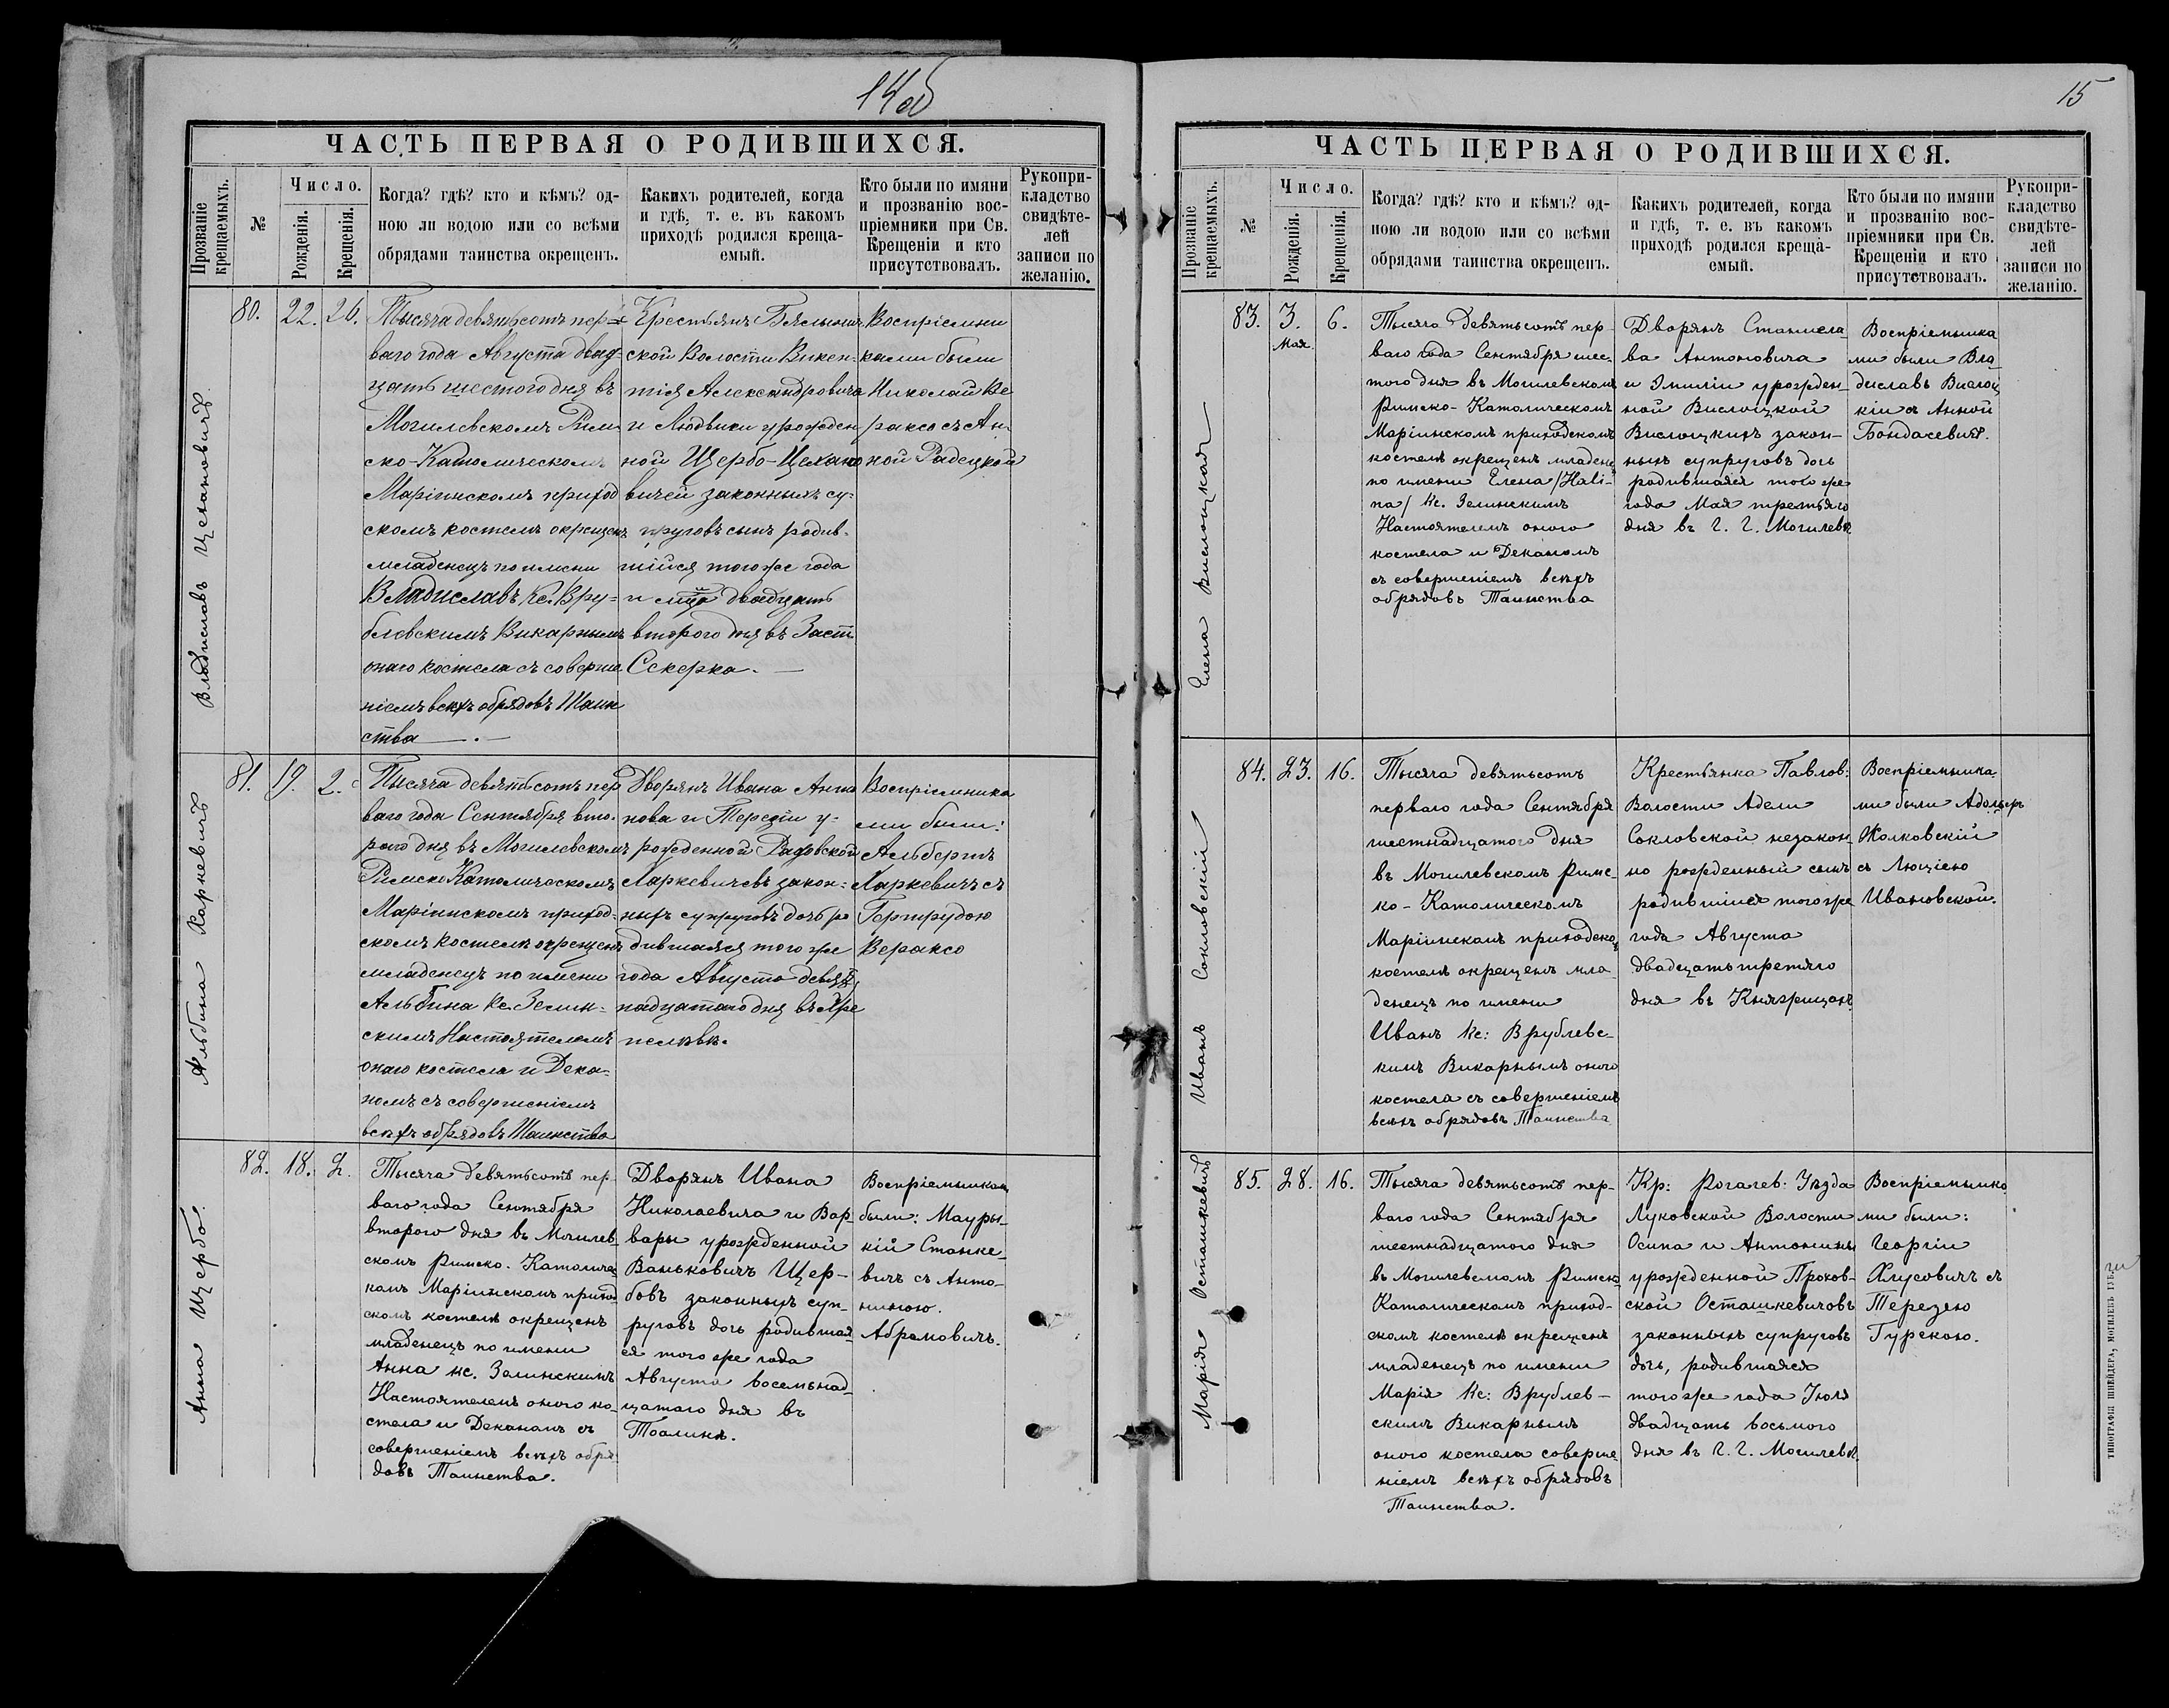 14об
ЧАСТЬ ПЕРВАЯ О РОДИВШИХСЯ.
Прозваніе крещаемыхъ.
№
Число.
Рожденія.
Крещенія.
Когда? гдѣ? кто и кѣмъ? од-
ною ли водою или со всѣми
обрядами таинства окрещенъ.
Какихъ родителей, когда
и гдѣ, т. е. въ какомъ
приходѣ родился креща-
емый.
Кто были по имяни
и прозванію вос-
пріемники при Св.
Крещеніи и кто
присутствовалъ.
Рукопри-
кладство
свидѣте-
лей
записи по
желанію.
Владиславъ Цехановичъ
80. 22. 26.
Тысяча девятьсотъ пер=
ваго года Августа двад-
цать шестого дня въ
Могилевскомъ Рим
ско-Католическомъ
Маріинскомъ приход
скомъ костелѣ окрещенъ
младенецъ по имени
Владиславъ Кс. Вру=
блевскимъ Викарнымъ
онаго костела съ соверше
ніемъ всѣхъ обрядовъ Таин
ства
Крестьянъ Бялынич
ской Волости Викен-
тія Александровича
и Людвики урожден
ной Щербо-Цехано
вичей законныхъ су-
пруговъ сынъ родив-
шійся того же года
и мца двадцать
второго дня въ Заст.
Секерка.
Воспріемни
ками были
Николай Ве
ракса съ Ан-
ной Радецкой
Альбина Харкевичъ
81. 19. 2.
Тысяча девятьсотъ пер
ваго года Сентября вто-
рого дня въ Могилевскомъ
Римско Католическомъ
Маріинскомъ приход-
скомъ костелѣ окрещенъ
младенецъ по имени
Альбина Кс. Зелин-
скимъ Настоятелемъ
онаго костела и Дека-
номъ съ совершеніемъ
всѣхъ обрядовъ Таинства
Дворянъ Ивана Анто
нова и Терезіи у-
рожденной
Харкевичевъ закон-
ныхъ супруговъ дочь ро
дившаяся того же
года Августа девят
надцатаго дня въ Хре
пелевѣ.
Воспріемника
ми были:
Альбертъ
Харкевичъ съ
Гертрудою
Веракса
Анна Щербо.
82. 18. 2.
Тысяча девятьсотъ пер-
ваго года Сентября
второго дня въ Могилев-
скомъ Римско-Католичес
комъ Маріинскомъ приход
скомъ костелѣ окрещенъ
младенецъ по имени
Анна кс. Зелинскимъ
Настоятелемъ оного ко-
стела и Деканомъ съ
совершеніемъ всѣхъ обря
довъ Таинства.
Дворянъ Ивана
Николаевича и Вар-
вары урожденной
Ваньковичъ Щер-
бовъ законныхъ суп-
руговъ дочь родившая-
ся того же года
Августа восемьнад-
цатаго дня въ
Воспріемниками
были: Мауры-
кій Станке-
вичъ съ Анто-
ниною
Абрамовичъ.
15
ЧАСТЬ ПЕРВАЯ О РОДИВШИХСЯ.
Прозваніе крещаемыхъ.
№
Число.
Рожденія.
Крещенія.
Когда? гдѣ? кто и кѣмъ? од-
ною ли водою или со всѣми
обрядами таинства окрещенъ.
Какихъ родителей, когда
и гдѣ, т. е. въ какомъ
приходѣ родился креща-
емый.
Кто были по имяни
и прозванію вос-
пріемники при Св.
Крещеніи и кто
присутствовалъ.
Рукопри-
кладство
свидѣте-
лей
записи по
желанію.
Елена Вислоцкая
83. 3. Мая. 6.
Тысяча девятьсотъ пер-
ваго года Сентября шес-
того дня въ Могилевскомъ
Римско-Католическомъ
Маріинскомъ приходскомъ
костелѣ окрещенъ младенецъ
по имени Елена /Hali-
na/ Кс. Зелинскимъ
Настоятелемъ оного
костела и Деканомъ
съ совершеніемъ всѣхъ
обрядовъ Таинства
Дворянъ Станисла-
ва Антоновича
и Эмиліи урожден-
ной Вислоцкой
Вислоцкихъ закон-
ныхъ супруговъ дочь
родившаяся того же
года Мая третьяго
дня въ Г. Г. Могилевѣ
Воспріемника
ми были Вла
диславъ Вислоц
кій съ Анной
Бондасевичъ.
Иванъ Сокловскій
84. 23. 16.
Тысяча девятьсотъ
перваго года Сентября
шестнадцатого дня
въ Могилевскомъ Римс-
ко-Католическомъ
Маріинскомъ приходско
костелѣ окрещенъ мла-
денецъ по имени
Иванъ Кс: Врублевс-
кимъ Викарнымъ оного
костела съ совершеніемъ
всѣхъ обрядовъ Таинства
Крестьянка Павлов:
Волости Адели
Сокловской незакон-
но рожденный сынъ
родившійся того же
года Августа
двадцать третяго
дня въ Княжицахъ
Воспріемника-
ми были Адольфъ
Жолковскій
съ Люціею
Ивановской.
Марія Осташкевичъ
85. 28. 16.
Тысяча девятьсотъ пер-
ваго года Сентября
шестнадцатого дня
въ Могилевскомъ Римско
Католическомъ приход-
скомъ костелѣ окрещенъ
младенецъ по имени
Марія Кс: Врублев-
скимъ Викарнымъ
оного костела соверше
ніемъ всѣхъ обрядовъ
Таинства.
Кр: Рогачев: Уѣзда
Луковской Волости
Осипа и Антонины
урожденной Прохов-
ской Осташкевичовъ
законныхъ супруговъ
дочь, родившаяся
того же года Іюля
двадцать восьмого
дня въ Г. Г. Могилевѣ.
Воспріемника
ми были:
Георгій
Хлусовичъ съ
Терезею
Гурскою.
ТИПОГРАФІЯ ШНЕЙДЕРА, МОГИЛЕВЪ ГУБ.